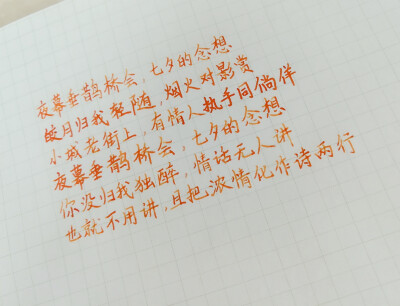 夜幕垂鹊桥会，七夕的念想
皎月归我轻随，烟火对影赏
小城老街上，有情人执手同倘佯
夜幕垂鹊桥会，七夕的念想
你没归我独醉，情话无人讲
也就不用讲，且把浓情化作诗两行